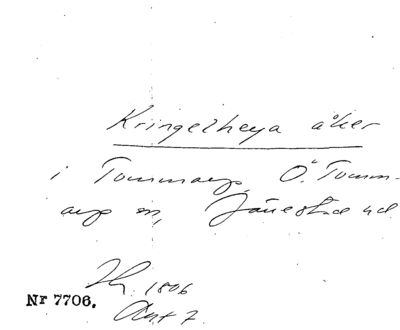 Kringelheya åker
i Tommarp, Ö. Tomm-
arp sn, Järrestad hd.
1806
Akt 7
Nr 7706.